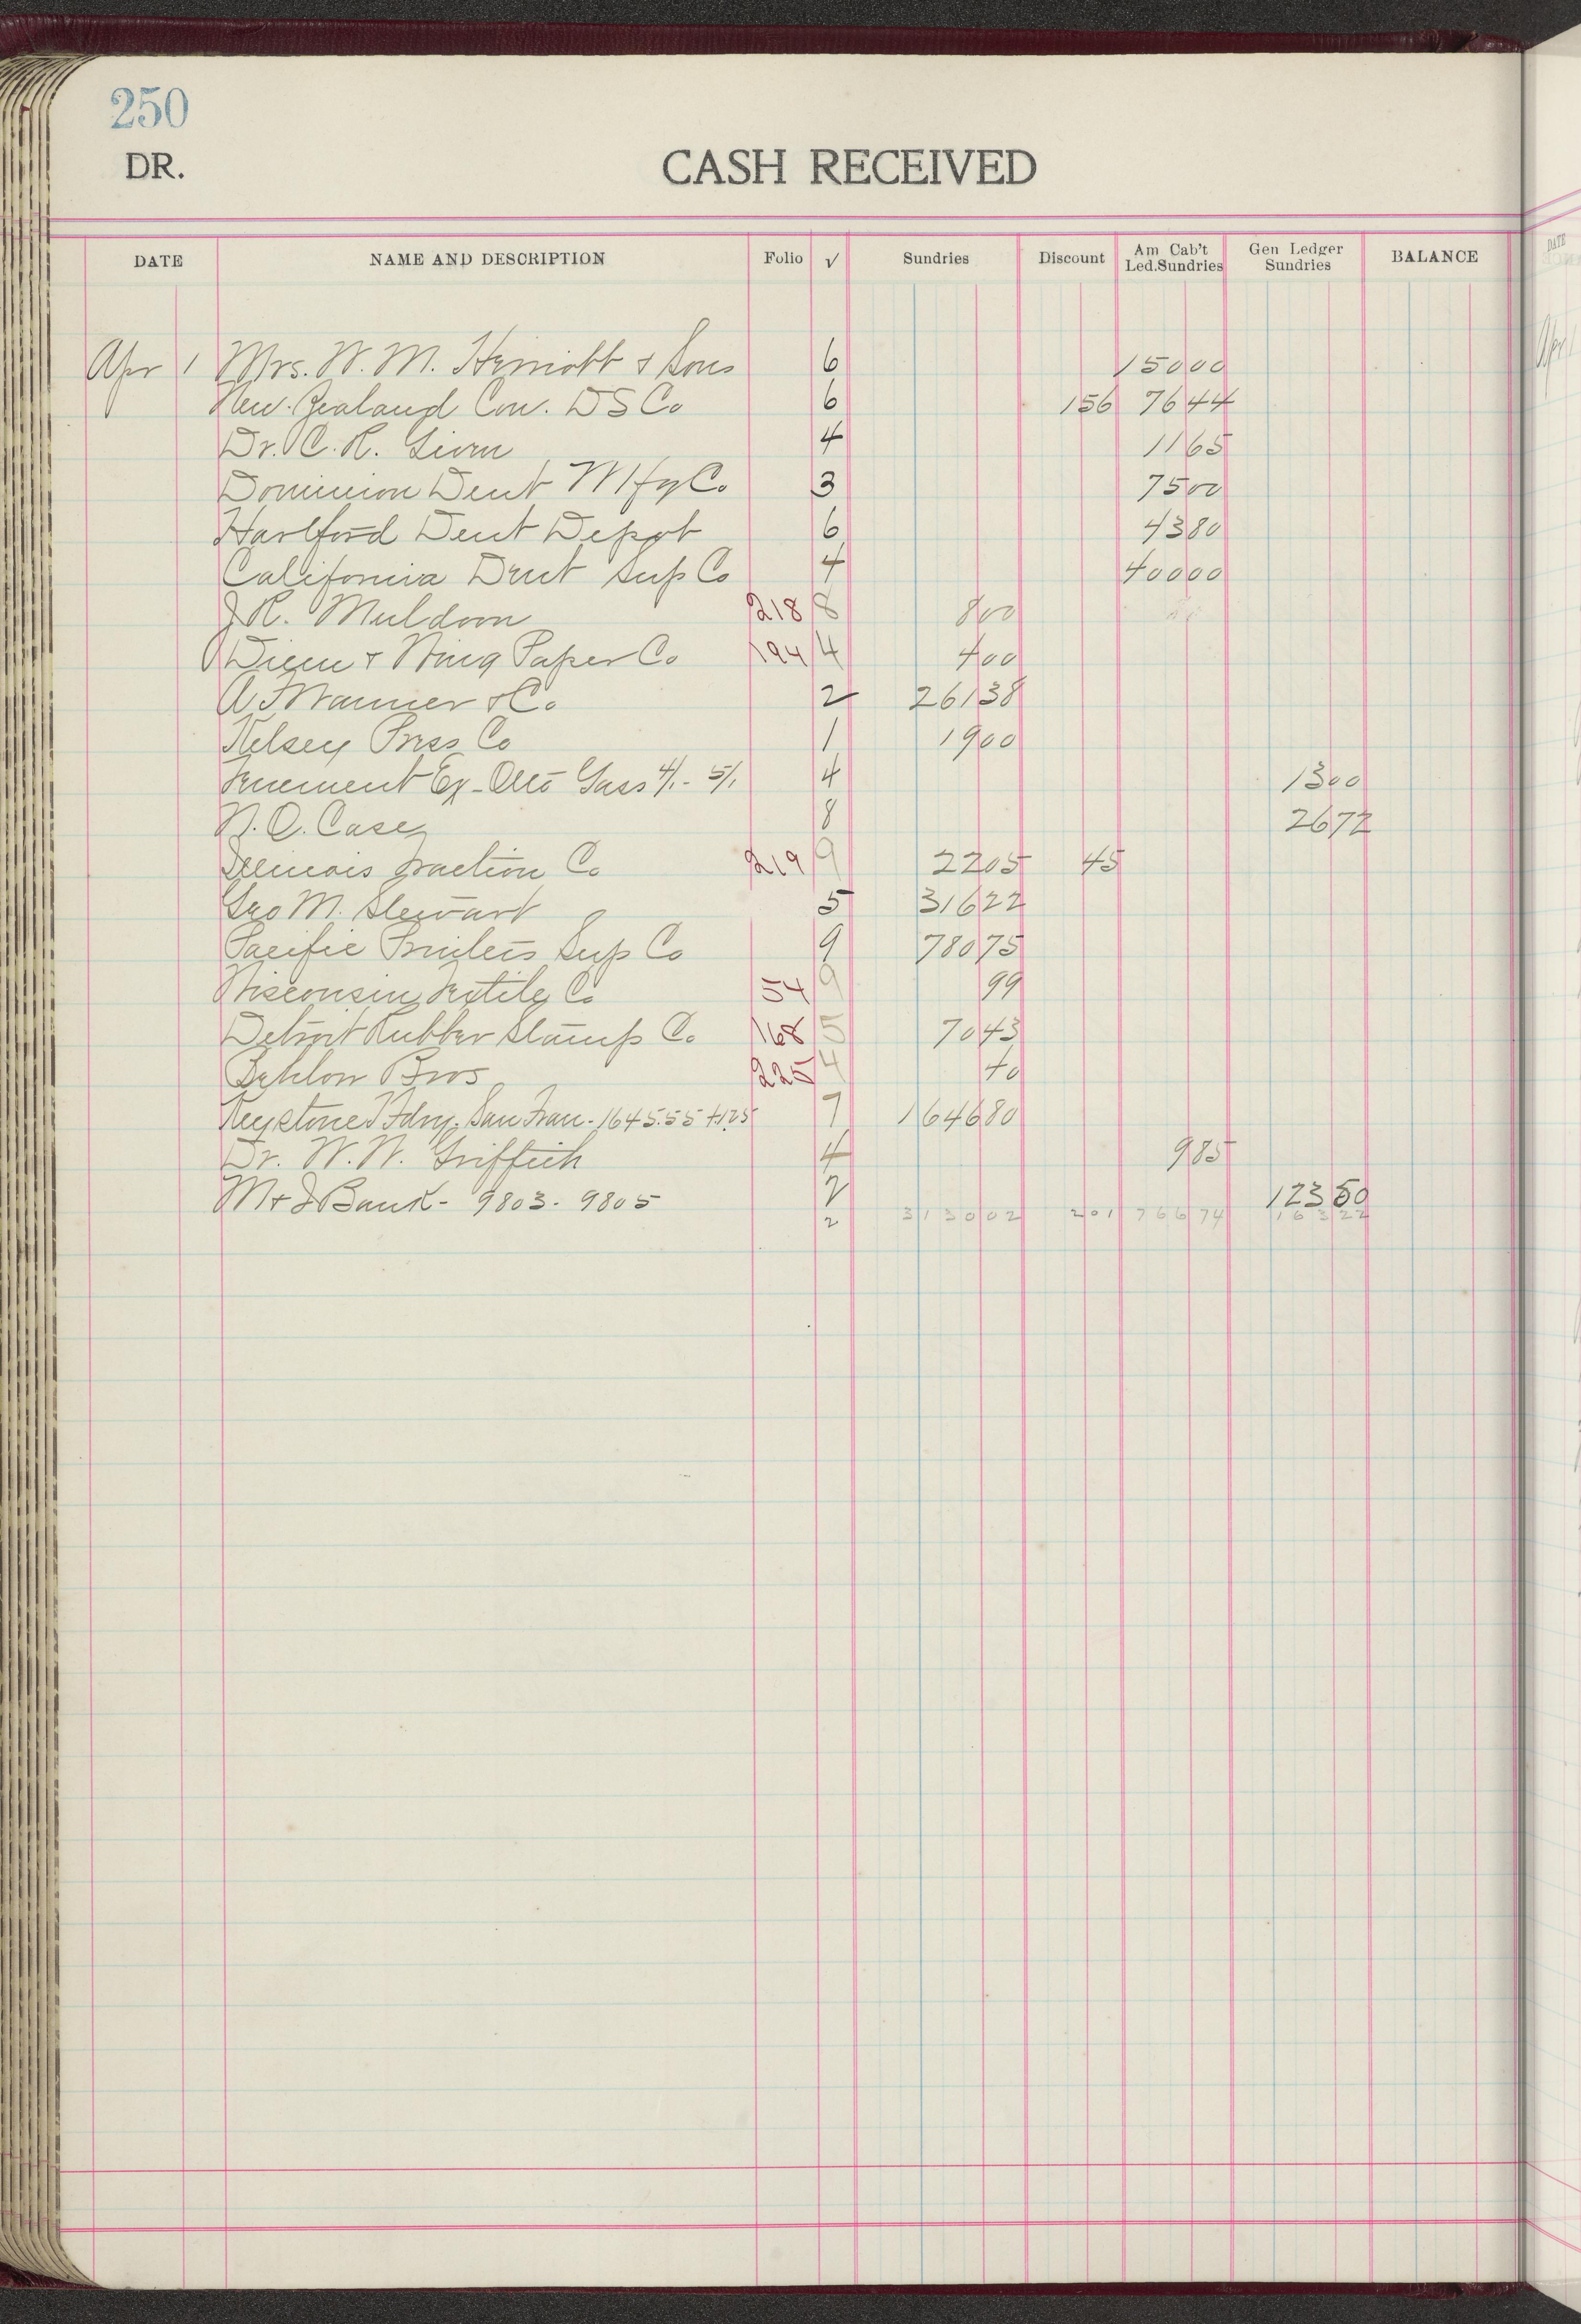 250
DR.
CASH RECEIVED
DATE NAME AND DESCRIPTION Folio √ Sundries Discount Am Cab't Led.Sundries Gen Ledger Sundries BALANCE
Apr 1 Mrs. W. M. Herriott & Sons 6 15000
New. Zealand Con. D S Co 6 156 7644
Dr. C. R. Givin 4 1165
Dominion Dent Mfg Co 3 7500
Hartford Dent Depot 6 4380
California Dent Sup Co 4 40000
J R. Muldoon 218 8 800
Diem & Wing Paper Co 194 4 400
A J Wanner & Co 2 26138
Kelsey Press Co 1 1900
Tenement Ex - Otto Gass 4/1 - 5/1 4 1300
N. O. Case 8 2672
Illinois Traction Co 219 9 2205 45
Geo M. Stewart 5 31622
Pacific Printers Sup Co 9 78075
Wisconsin Textile Co 54 9 99
Detroit Rubber Stamp Co. 168 5 7043
Behlow Bros 225 4 40
Keystone T Fdry. San Fran - 1645.55 + 1.25 7 164680
Dr. W. W. Griffith 4 985
M & I Bank - 9803 - 9805 2 12350
2 313002 201 76674 16322